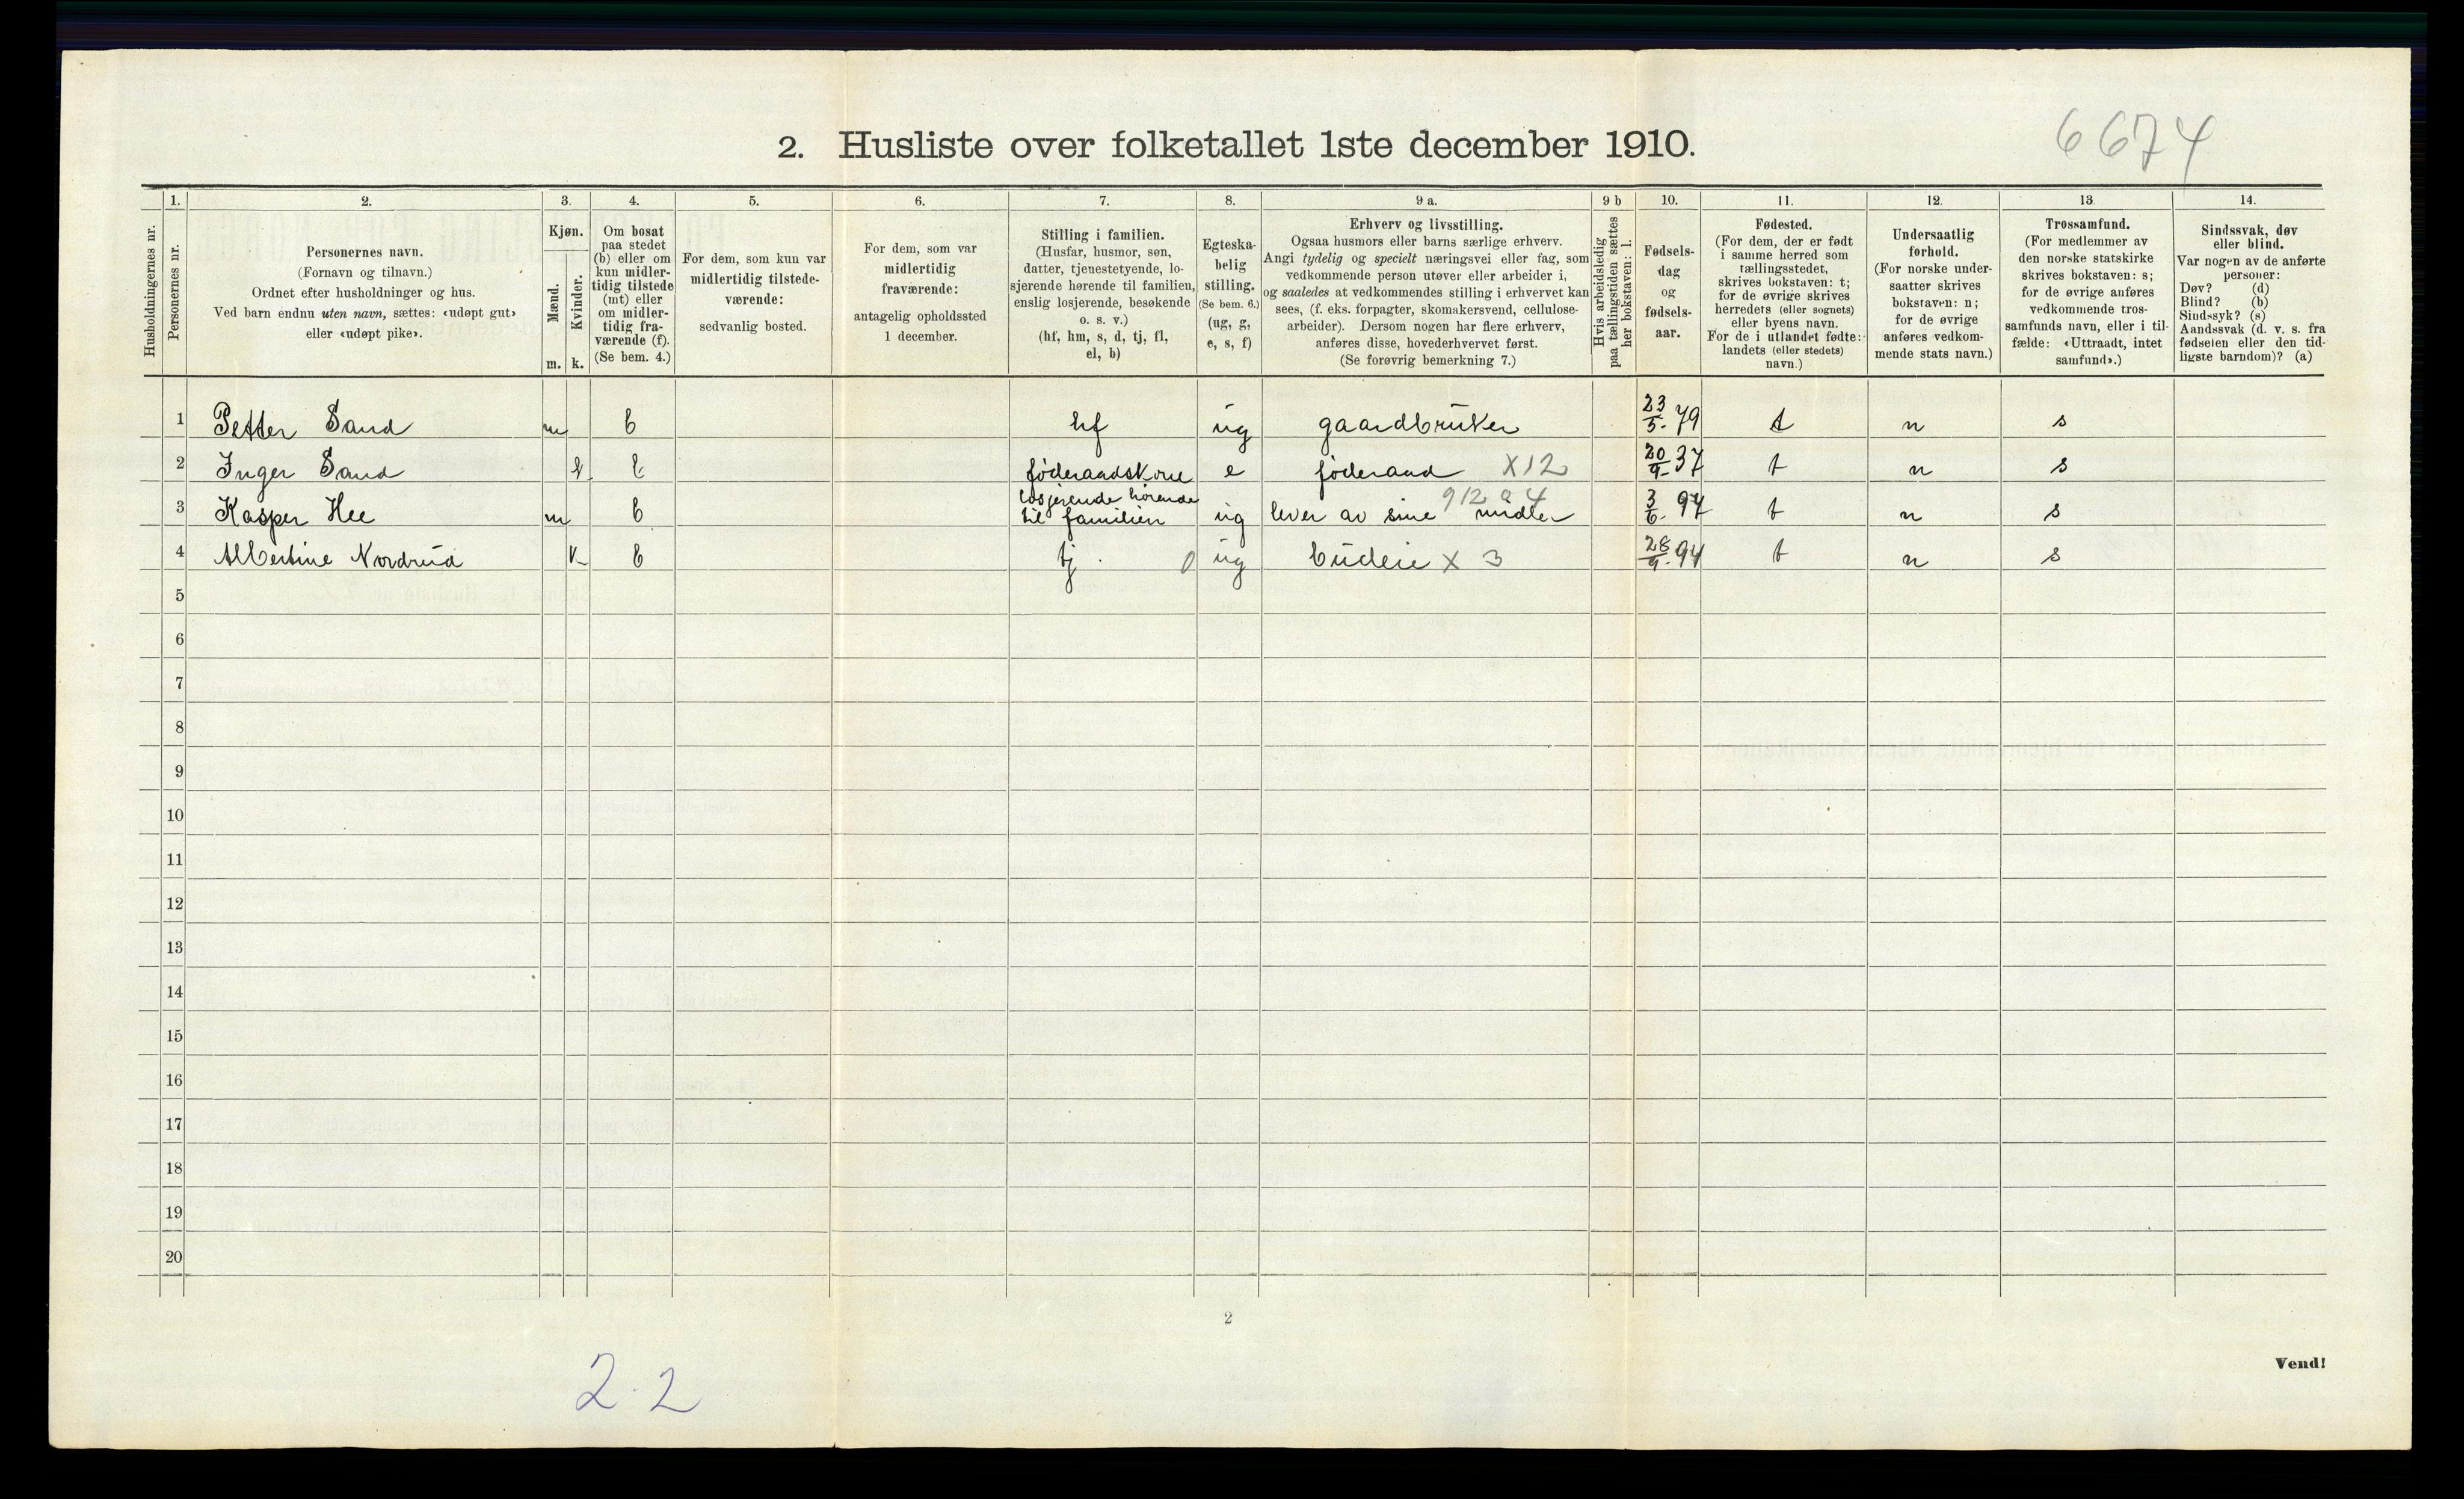 6674
2. Husliste over folketallet 1ste december 1910.
Husholdningernes nr.
1.
Personernes nr.
2.
Personernes navn.
(Fornavn og tilnavn.)
Ordnet efter husholdninger og hus.
Ved barn endnu uten navn, sættes: «udøpt gut»
eller «udøpt pike».
3.
Kjøn.
Mænd.
m.
Kvinder.
k.
4.
Om bosat
paa stedet
(b) eller om
kun midler-
tidig tilstede
(mt) eller
om midler-
tidig fra-
værende (f).
(Se bem. 4.)
5.
For dem, som kun var
midlertidig tilstede-
værende:
sedvanlig bosted.
6.
For dem, som var
midlertidig
fraværende:
antagelig opholdssted
1 december.
7.
Stilling i familien.
(Husfar, husmor, søn,
datter, tjenestetyende, lo-
sjerende hørende til familien,
enslig losjerende, besøkende
o. s. v.)
(hf, hm, s, d, tj, fl,
el, b)
8.
Egteska-
belig
stilling.
(Se bem. 6.)
(ug, g,
e, s, f)
9 a.
Erhverv og livsstilling.
Ogsaa husmors eller barns særlige erhverv.
Angi tydelig og specielt næringsvei eller fag, som
vedkommende person utøver eller arbeider i,
og saaledes at vedkommendes stilling i erhvervet kan
sees, (f. eks. forpagter, skomakersvend, cellulose-
arbeider). Dersom nogen har flere erhverv,
anføres disse, hovederhvervet først.
(Se forøvrig bemerkning 7.)
9 b
Hvis arbeidsledig
paa tællingstiden sættes
her bokstaven: l.
10.
Fødsels-
dag
og
fødsels-
aar.
11.
Fødested.
(For dem, der er født
i samme herred som
tællingsstedet,
skrives bokstaven: t;
for de øvrige skrives
herredets (eller sognets)
eller byens navn.
For de i utlandet fødte:
landets (eller stedets)
navn.)
12.
Undersaatlig
forhold.
(For norske under-
saatter skrives
bokstaven: n;
for de øvrige
anføres vedkom-
mende stats navn.)
13.
Trossamfund.
(For medlemmer av
den norske statskirke
skrives bokstaven: s;
for de øvrige anføres
vedkommende tros-
samfunds navn, eller i til-
fælde: «Uttraadt, intet
samfund».)
14.
Sindssvak, døv
eller blind.
Var nogen av de anførte
personer:
Døv? (d)
Blind? (b)
Sindssyk? (s)
Aandssvak (d. v. s. fra
fødselen eller den tid-
ligste barndom)? (a)
1 Petter Sand m b hf ug gaardbruker 23/5-79 t n s
2 Inger Sand k b føderaadskone e føderaad X12 20/9-37 t n s
3 Kasper Hee m b losjerende hørende til familien ug lever av sine midler 912 a 4 3/6-97 t n s
4 Albertine Nordrud k b tj. 0 ug budeie X 3 28/9-94 t n s
5
6
7
8
9
10
11
12
13
14
15
16
17
18
19
20
2
Vend!
2 2